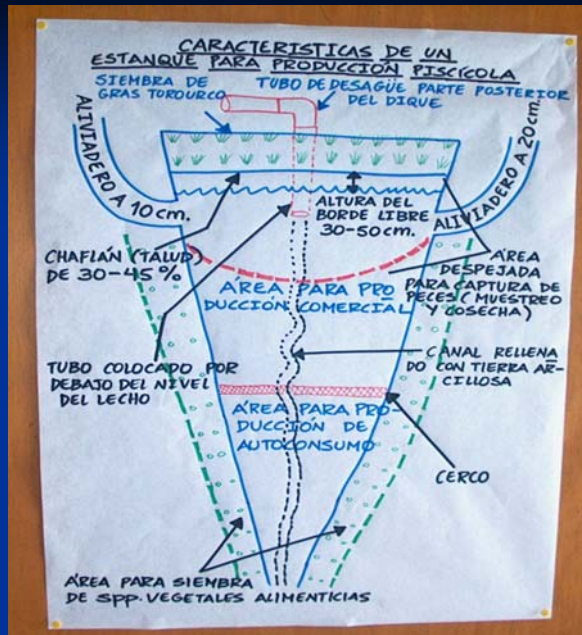 CARACTERISTICAS DE UN
ESTANQUE PARA PRODUCCIÓN PISCÍCOLA
SIEMBRA DE
GRAS TOROURCO
TUBO DE DESAGÜE PARTE POSTERIOR
DEL DIQUE
ALIVIADERO A 10 cm.
ALIVIADERO A 20 cm.
ALTURA DEL
BORDE LIBRE
30-50 cm.
CHAFLÁN (TALUD)
DE 30-45%
ÁREA
DESPEJADA
PARA CAPTURA DE
PECES (MUESTREO
Y COSECHA)
ÁREA PARA PRO
DUCCIÓN COMERCIAL
TUBO COLOCADO POR
DEBAJO DEL NIVEL
DEL LECHO
CANAL RELLENA
DO CON TIERRA AR-
CILLOSA
ÁREA PARA PRO
DUCCIÓN DE
AUTOCONSUMO
CERCO
ÁREA PARA SIEMBRA
DE SPP. VEGETALES ALIMENTICIAS